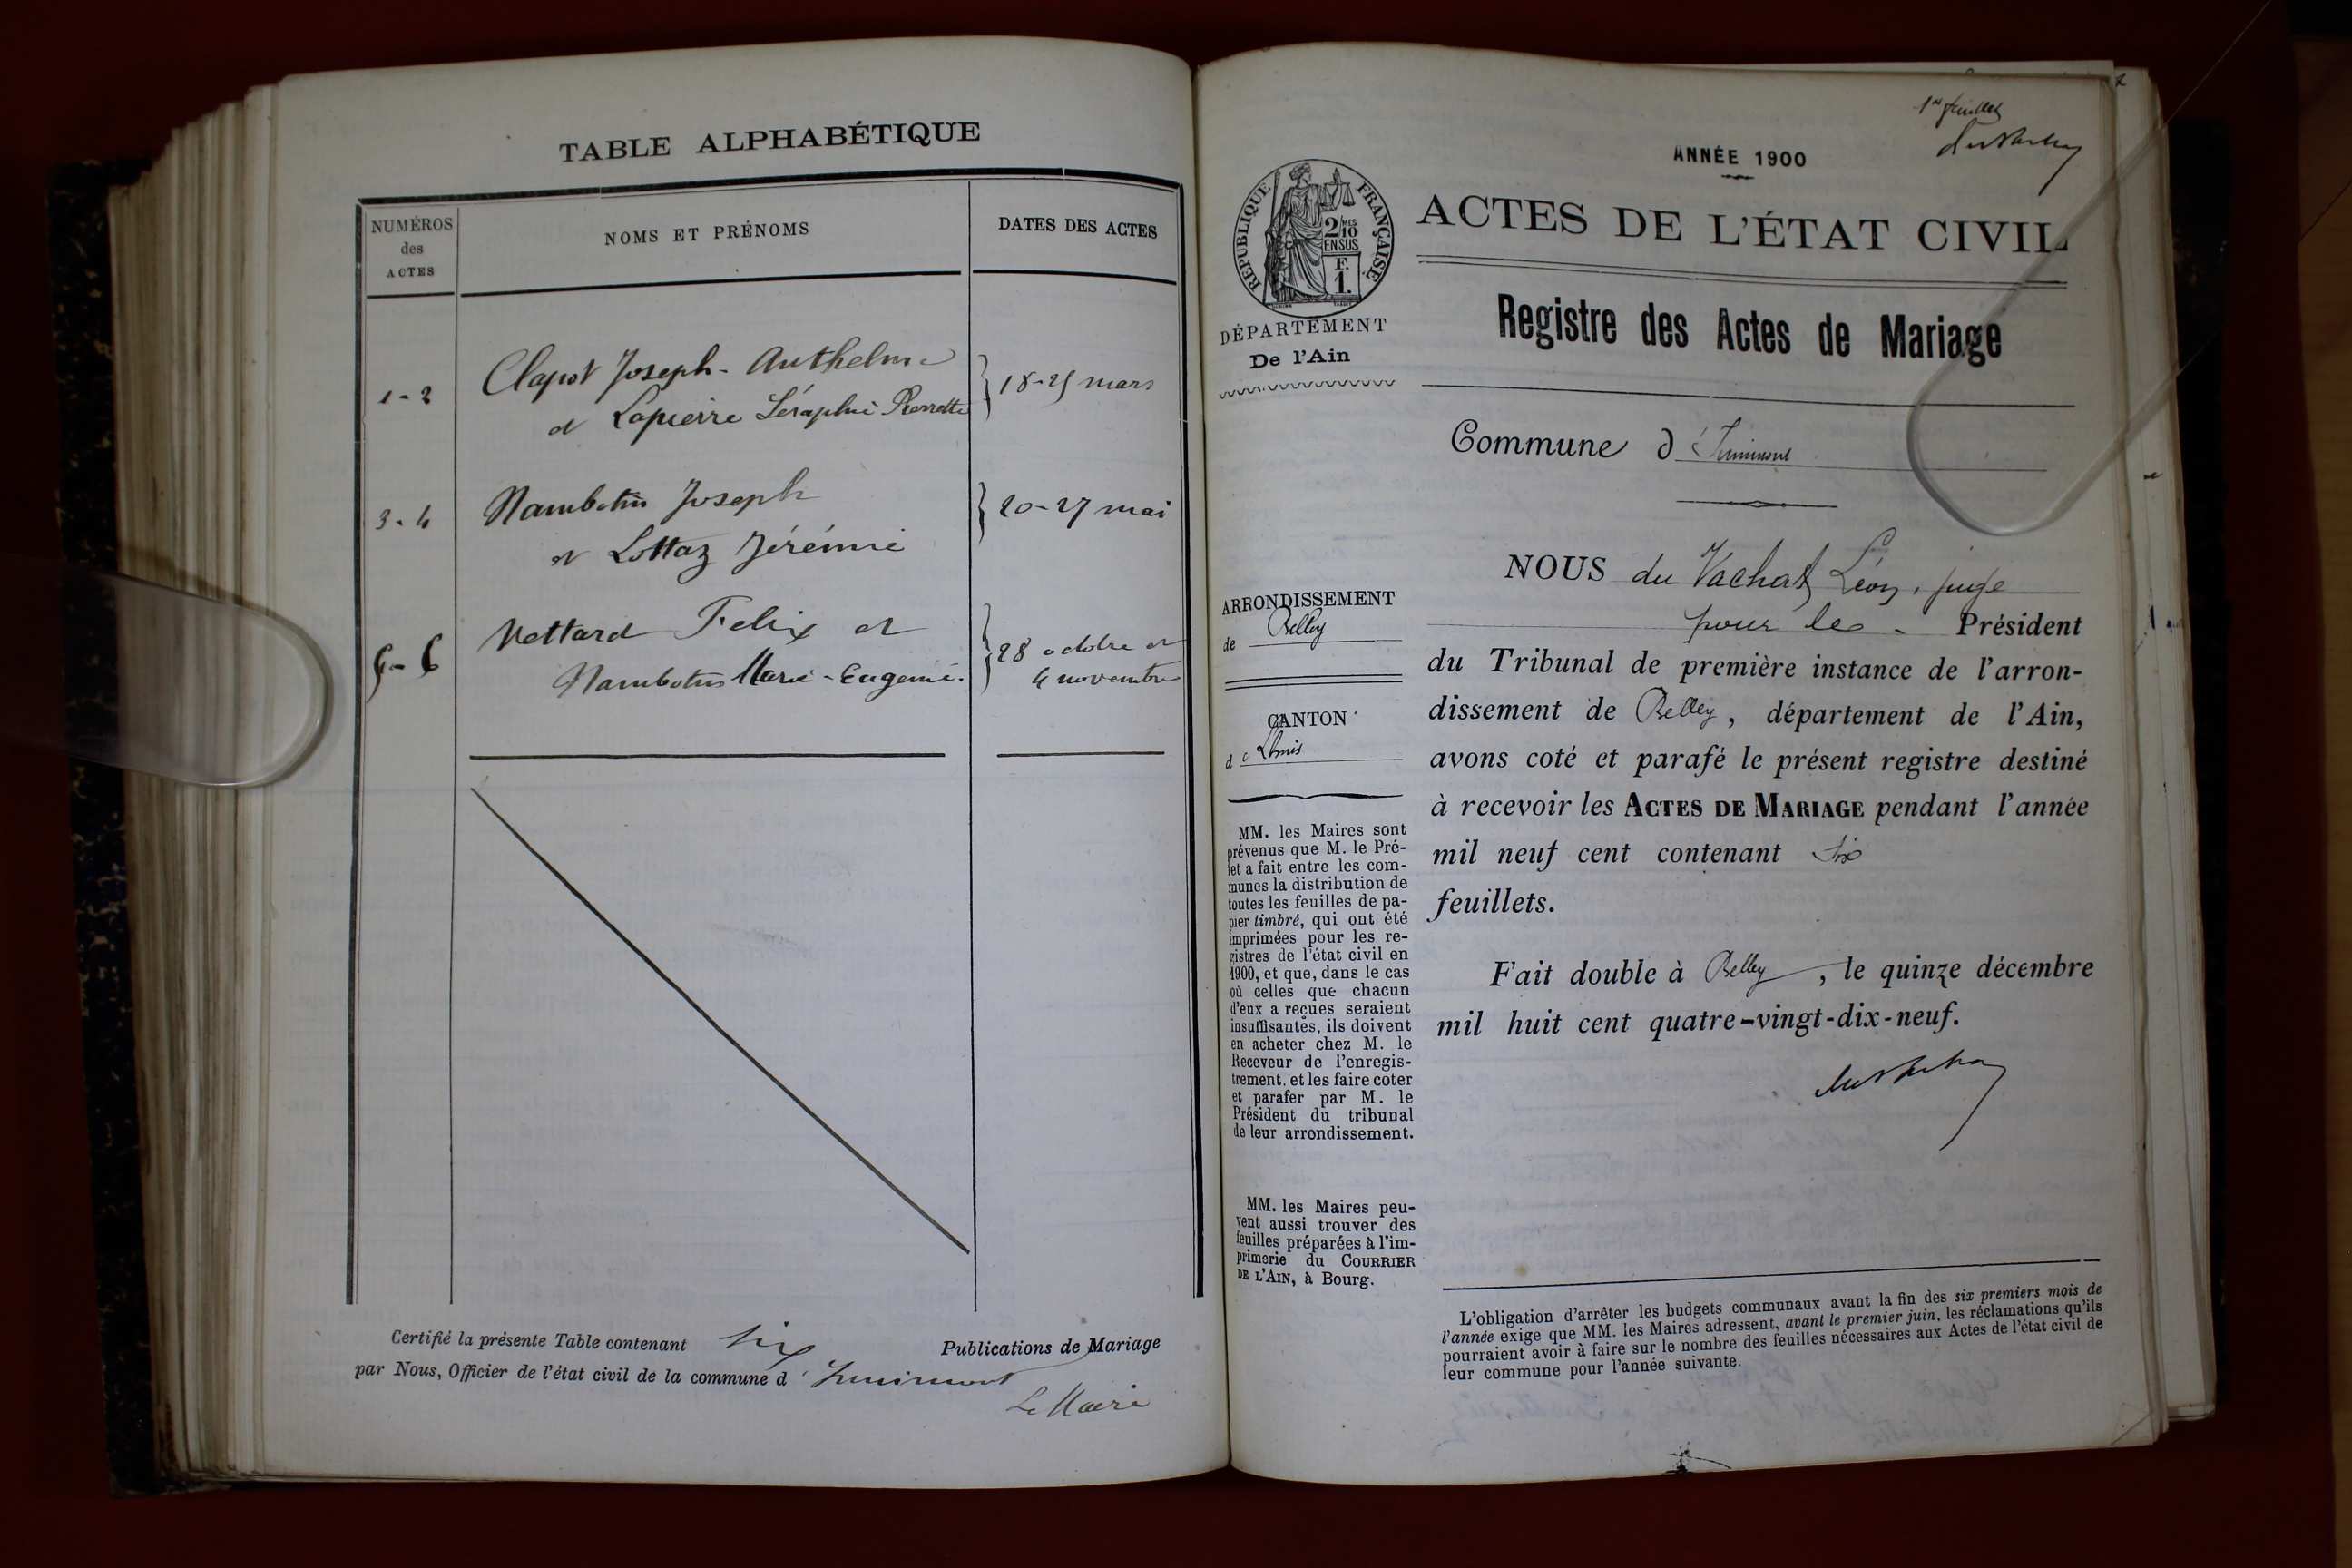 TABLE ALPHABÉTIQUE
NUMÉROS
des
ACTES
NOMS ET PRÉNOMS
DATES DES ACTES
1-2
Clapot Joseph-Anthelme
et Lapierre Séraphie Pierrette
18-25 mars
3-4
Nambotin Joseph
et Lottaz Jérémie
20-27 mai
5-6
Nottard Felix et
Nambotin Marie-Eugenie.
28 octobre et
4 novembre
Certifié la présente Table contenant six Publications de Mariage
par Nous, Officier de l'état civil de la commune d'Izinimont
Le Maire
1er feuillet
ANNÉE 1900
RÉPUBLIQUE FRANÇAISE
2/10MES
EN SUS
F.
1.
ACTES DE L'ÉTAT CIVIL
DÉPARTEMENT
De l'Ain
Registre des Actes de Mariage
Commune d'
NOUS du Vachat Léon, juge
pour le Président
du Tribunal de première instance de l'arron-
dissement de Belley, département de l'Ain,
avons coté et parafé le présent registre destiné
à recevoir les ACTES DE MARIAGE pendant l'année
mil neuf cent contenant six
feuillets.
Fait double à Belley, le quinze décembre
mil huit cent quatre-vingt-dix-neuf.
ARRONDISSEMENT
de Belley
CANTON
de Lhuis
MM. les Maires sont
prévenus que M. le Pré-
fet a fait entre les com-
munes la distribution de
toutes les feuilles de pa-
pier timbré, qui ont été
imprimées pour les re-
gistres de l'état civil en
1900, et que, dans le cas
où celles que chacun
d'eux a reçues seraient
insuffisantes, ils doivent
en acheter chez M. le
Receveur de l'enregis-
trement, et les faire coter
et parafer par M. le
Président du tribunal
de leur arrondissement.
MM. les Maires peu-
vent aussi trouver des
feuilles préparées à l'im-
primerie du COURRIER
DE L'AIN, à Bourg.
L'obligation d'arrêter les budgets communaux avant la fin des six premiers mois de
l'année exige que MM. les Maires adressent, avant le premier juin, les réclamations qu'ils
pourraient avoir à faire sur le nombre des feuilles nécessaires aux Actes de l'état civil de
leur commune pour l'année suivante.